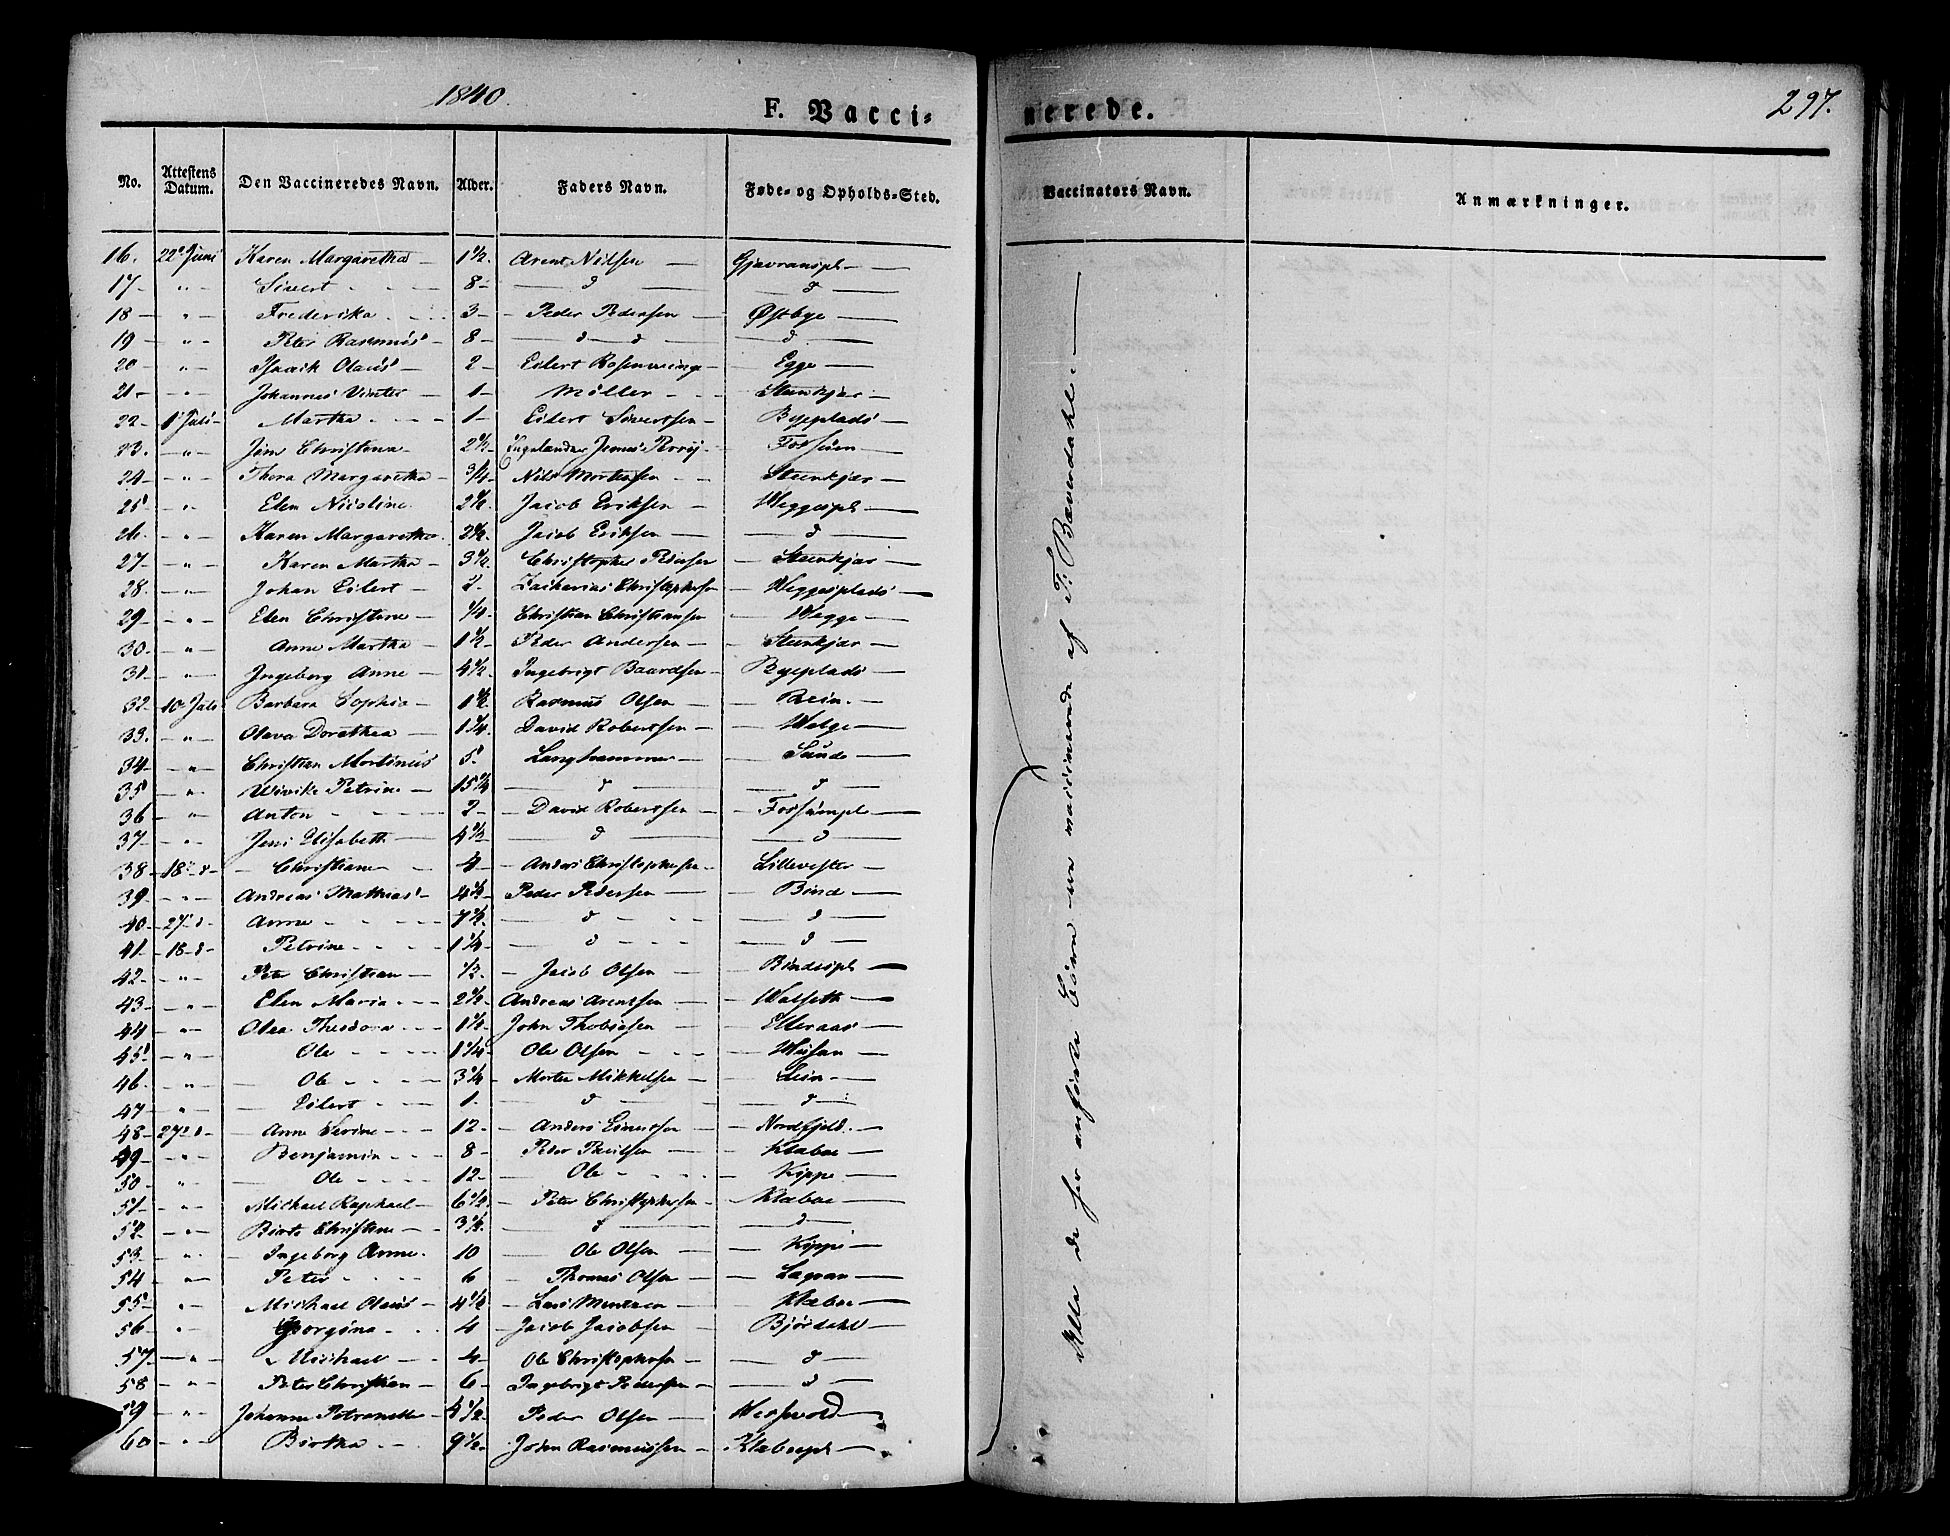 1840.
F. Vacci-
nerede.
297.
No. Attestens Datum. Den Vaccineredes Navn. Alder. Faders Navn. Føde- og Opholds-Sted. Vaccinators Navn. Anmærkninger.
16. 22 Juni Karen Margaretha 1½ Arent Nilsen Gjævranspl
17 " Sivert 8 d d
18 " Frederika 3 Peder Pedersen Østbye
19 " Peter Rasmus 8 d d d
20 " Isaack Olaus 2 Eilert Rosenvinge Egge
21 " Johannes Vinter 1 Møller Steenkjær
22 1 Juli Martha 1 Eilert Sivertsen Byeplads
23. " Christina 2½ Jonas Fossum
24 " Thora Margaretha ¾ Nils Mortensen Steenkjær
25 " Elen Nicoline 2½ Jacob Eriksen Heggespl
26. " Karen Margaretha 2½ Jacob Eriksen d
27 " Karen Martha 3½ Christopher Pedersen Steenkjær
28. " Johan Eilert 2 Zacharias Christophersen Heggesplads
29 " Elen Christine ¼ Christian Christiansen Hegge
30 " Anne Martha 1½ Peder Andersen Steenkjær
31 " Ingeborg Anne 4½ Ingebrigt Baardsen Byeplads
32 10 Juli Barbara Sophia 1½ Rasmus Olsen Rein
33. " Olava Dorathea 1¼ David Robertsen
34 " Christian Martinus 5 Langhammer Sunde
35 " Wivike Petrine 15 d d
36 " Anton 2 David Robertsen Fossumpl
37 " Jeni Elisabeth 4½ d d
38 18 d Christiane 4 Anders Christophersen Lillevester
39 " Andreas Mathias 4½ Peder Pedersen Binde
40 27 d Anne 7½ d d
41 18 d Petrine 1¼ d d
42 " Peter Christian ½ Jacob Olsen Bindespl
43 " Elen Maria 2½ Andreas Arentsen Walseth
44 " Olea Theodora 1½ John Thobiasen Elleraas
45 " Ole 1¼ Ole Olsen
46 " Ole 3¼ Morten Mikkelsen Lein
47 " Eilert 1 d d
48 27 d Anne Serine 12 Anders Einersen Nordfjeld
49 " Benjamin 8 Peder Paulsen Klæboe
50 " Ole 12 Ole Kippe
51 " Michael Raphael 6½ Peter Christophersen Klæboe
52 " Christine 3½ d d
53 " Ingeborg Anne 10 Ole Olsen Kippe
54 " Peter 6 Thomas Olsen
55 " Michael Olaus 4½ Lars Klæboe
56 " Georgina 4 Jacob Jacobsen Bjørdahl
57 " Michael 4 Ole Christophersen d
58 " Peter Christian 6 Ingebrigt Pedersen d
59 " Johanne Petronelle 4½ Peder Olsen
60 " 9½ John Rasmussen Klæboepl
Alle de her anførte Børn ere vaccinerede af T. Bæverdahl.